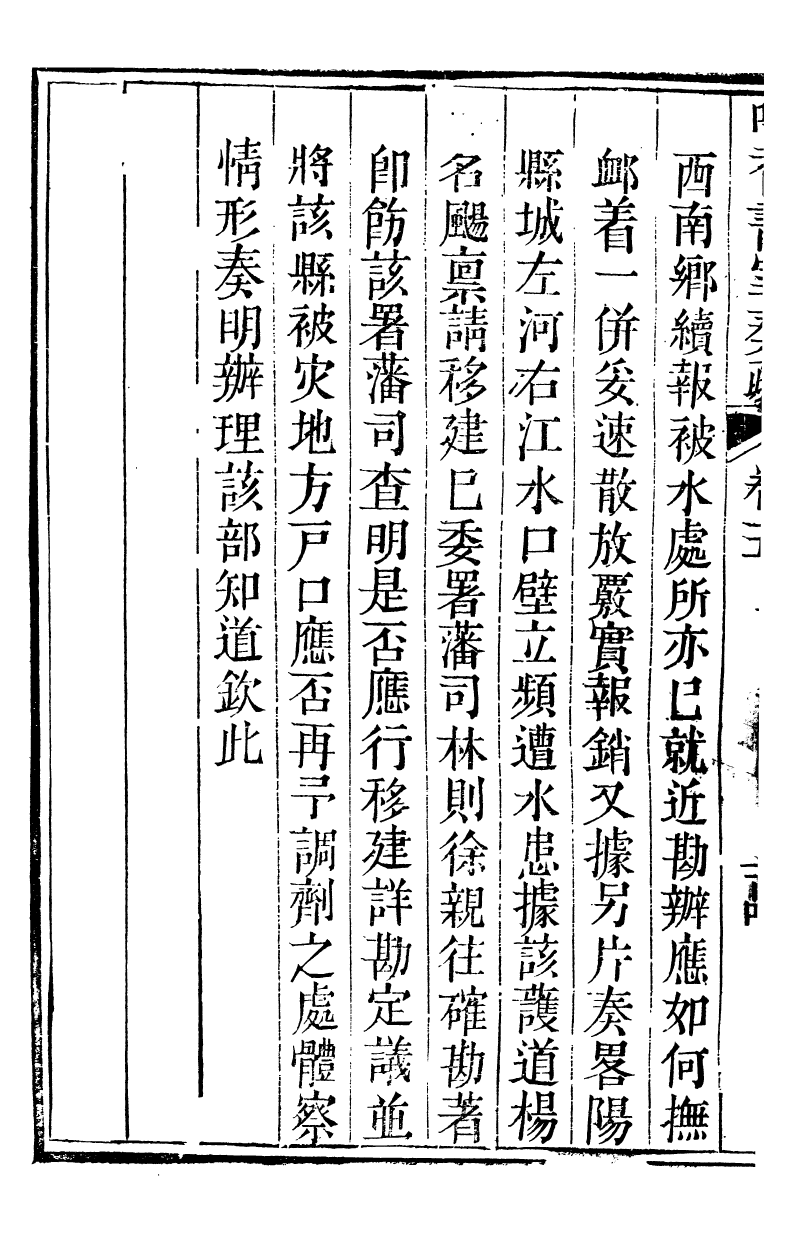 西南鄉續報被水處所亦巳就近勘辦應如何撫
䘏着一併妥速散放覈實報銷又據另片奏畧陽
縣城左河右江水口壁立頻遭水患據該護道楊
名颺禀請移建巳委署藩司林則徐親往確勘著
卽飭該署藩司查明是否應行移建詳勘定議並
將該縣被灾地方戸口應否再予調劑之處體察
情形奏明辦理該部知道欽此